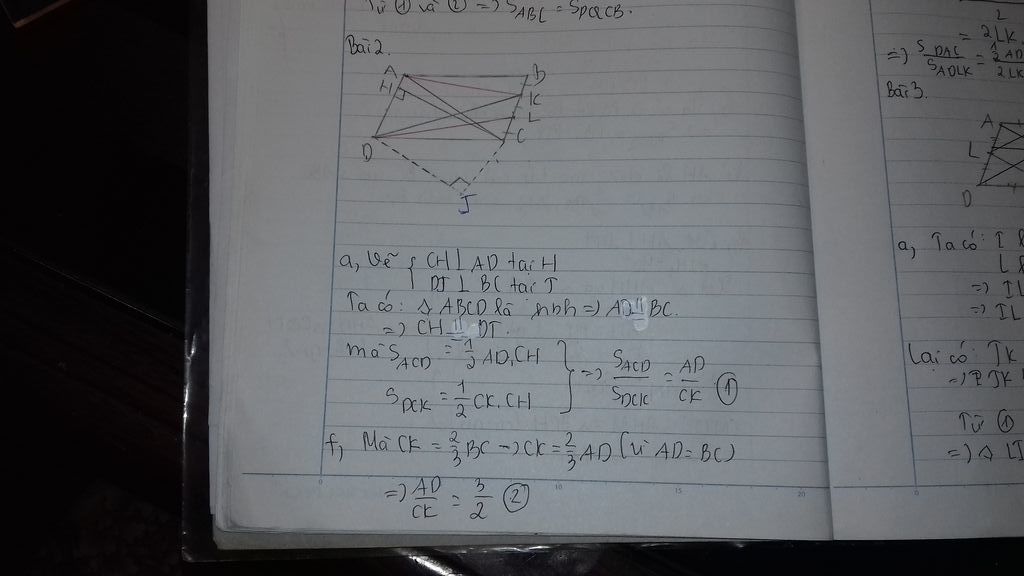 Từ ① và ② => S_ABC = S_PQCB.
Bài 2.
A B
H K
L
D C
J
a, Vẽ { CH ⊥ AD tại H
DJ ⊥ BC tại J
Ta có: ◇ ABCD là hbh => AD // BC.
=> CH = DJ.
mà S_ACD = 1/2 AD.CH
S_DCK = 1/2 CK.CH
} => S_ACD/S_DCK = AD/CK ①
f, Mà CK = 2/3 BC -> CK = 2/3 AD (Vì AD = BC)
=> AD/CK = 3/2 ②
2
= 2LK
Bài 3.
A
L
D
a, Ta có: I
L
=> IL
=> IL
Lại có:
Từ ①
0 10 15 20
0